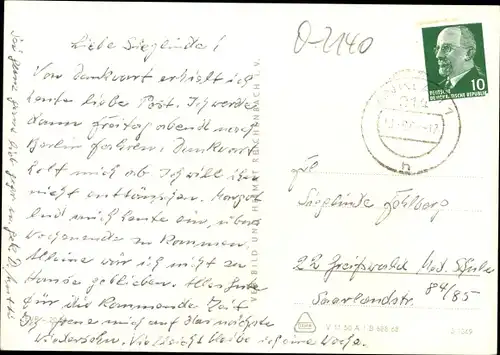 O-2140
Liebe Sieglinde!
Von Dankwart erhielt ich
heute liebe Post. Ich werde
dann Freitag abend nach
Berlin fahren. Dankwart
holt mich ab. Ich will ihn
nicht enttäuschen. Margot
lud mich heute ein, übers
Wochenende zu kommen.
Alleine wär ich nicht zu
Hause geblieben. Alles Gute
für die kommende Zeit
freue mich auf das nächste
Wiedersehn. Vielleicht diese Woche.
10
DEUTSCHE
DEMOKRATISCHE REPUBLIK
Sieglinde
22 Greifswald Med. Schule
Saarlandstr. 84/85
BILD UND HEIMAT REICHENBACH I. V.
V 11 50 A 1 B